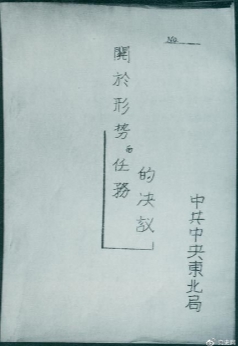 No
關於形势與任務
的决議
中共中央東北局